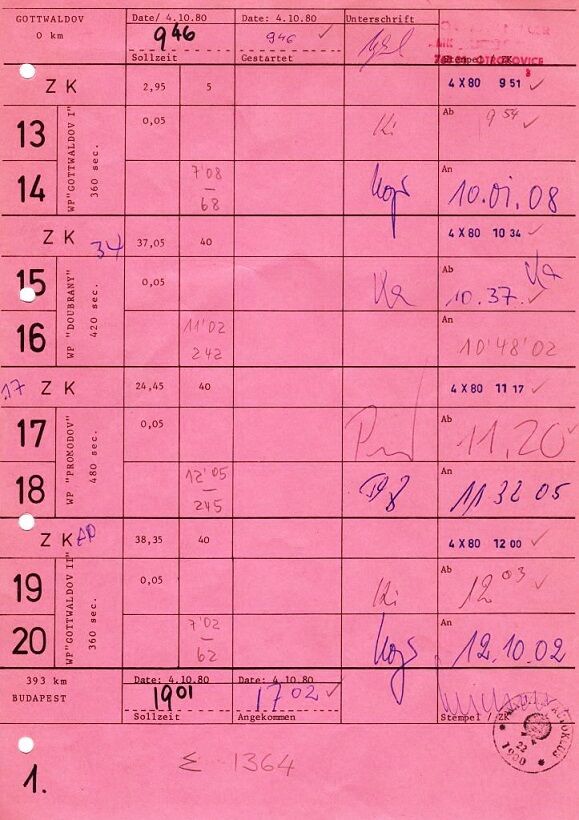 GOTTWALDOV
0 km
Date/ 4.10.80
9 46
Sollzeit
Date: 4.10.80
9 46 ✓
Gestartet
Unterschrift
OTROKOVICE
3
ZK 2,95 5 4 X 80 9 51 ✓
13 0,05 Ki Ab 9 54 ✓
WP "GOTTWALDOV I"
360 sec.
14 7'08 An 10.01.08
68
ZK 34 37,05 40 4 X 80 10 34 ✓
15 0,05 Ab 10.37. ✓
WP "DOUBRANY"
420 sec.
16 11'02 An 10'48'02
242
17 ZK 24,45 40 4 X 80 11 17 ✓
17 0,05 Ab 11,20 ✓
WP "PROMODOV"
480 sec.
18 12'05 An 11 32 05
245
ZK 38,35 40 4 X 80 12 00 ✓
19 0,05 Ki Ab 12 03 ✓
WP "GOTTWALDOV II"
360 sec.
20 7'02 An 12.10.02
62
393 km
BUDAPEST
Date: 4.10.80
19 01
Sollzeit
Date: 4.10.80
17 02 ✓
Angekommen
Stempel / ZK
1.
Σ 1364